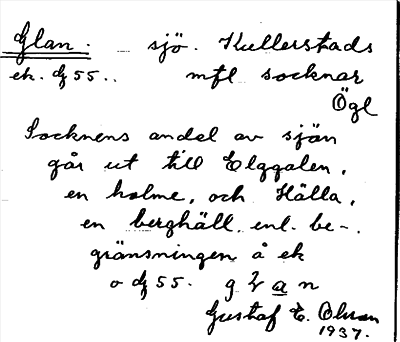 Glan. sjö. Kullerstads
ek. dz 55.. mfl socknar
Ögl
Socknens andel av sjön
går ut till Elggalen,
en holme, och Hälla,
en berghäll, enl. be-
gränsningen å ek
o dz 55. g l a n
Gustaf E. Olsson
1937.